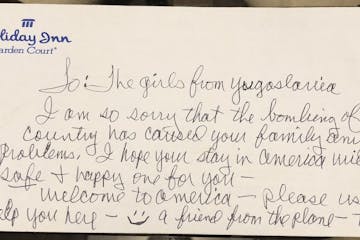 liday Inn
arden Court®
To: The girls from Yugoslavia
I am so sorry that the bombing of
country has caused your family and
problems. I hope your stay in America will
safe & happy one for you —
Welcome to America — please us
lp you here — a friend from the plane —